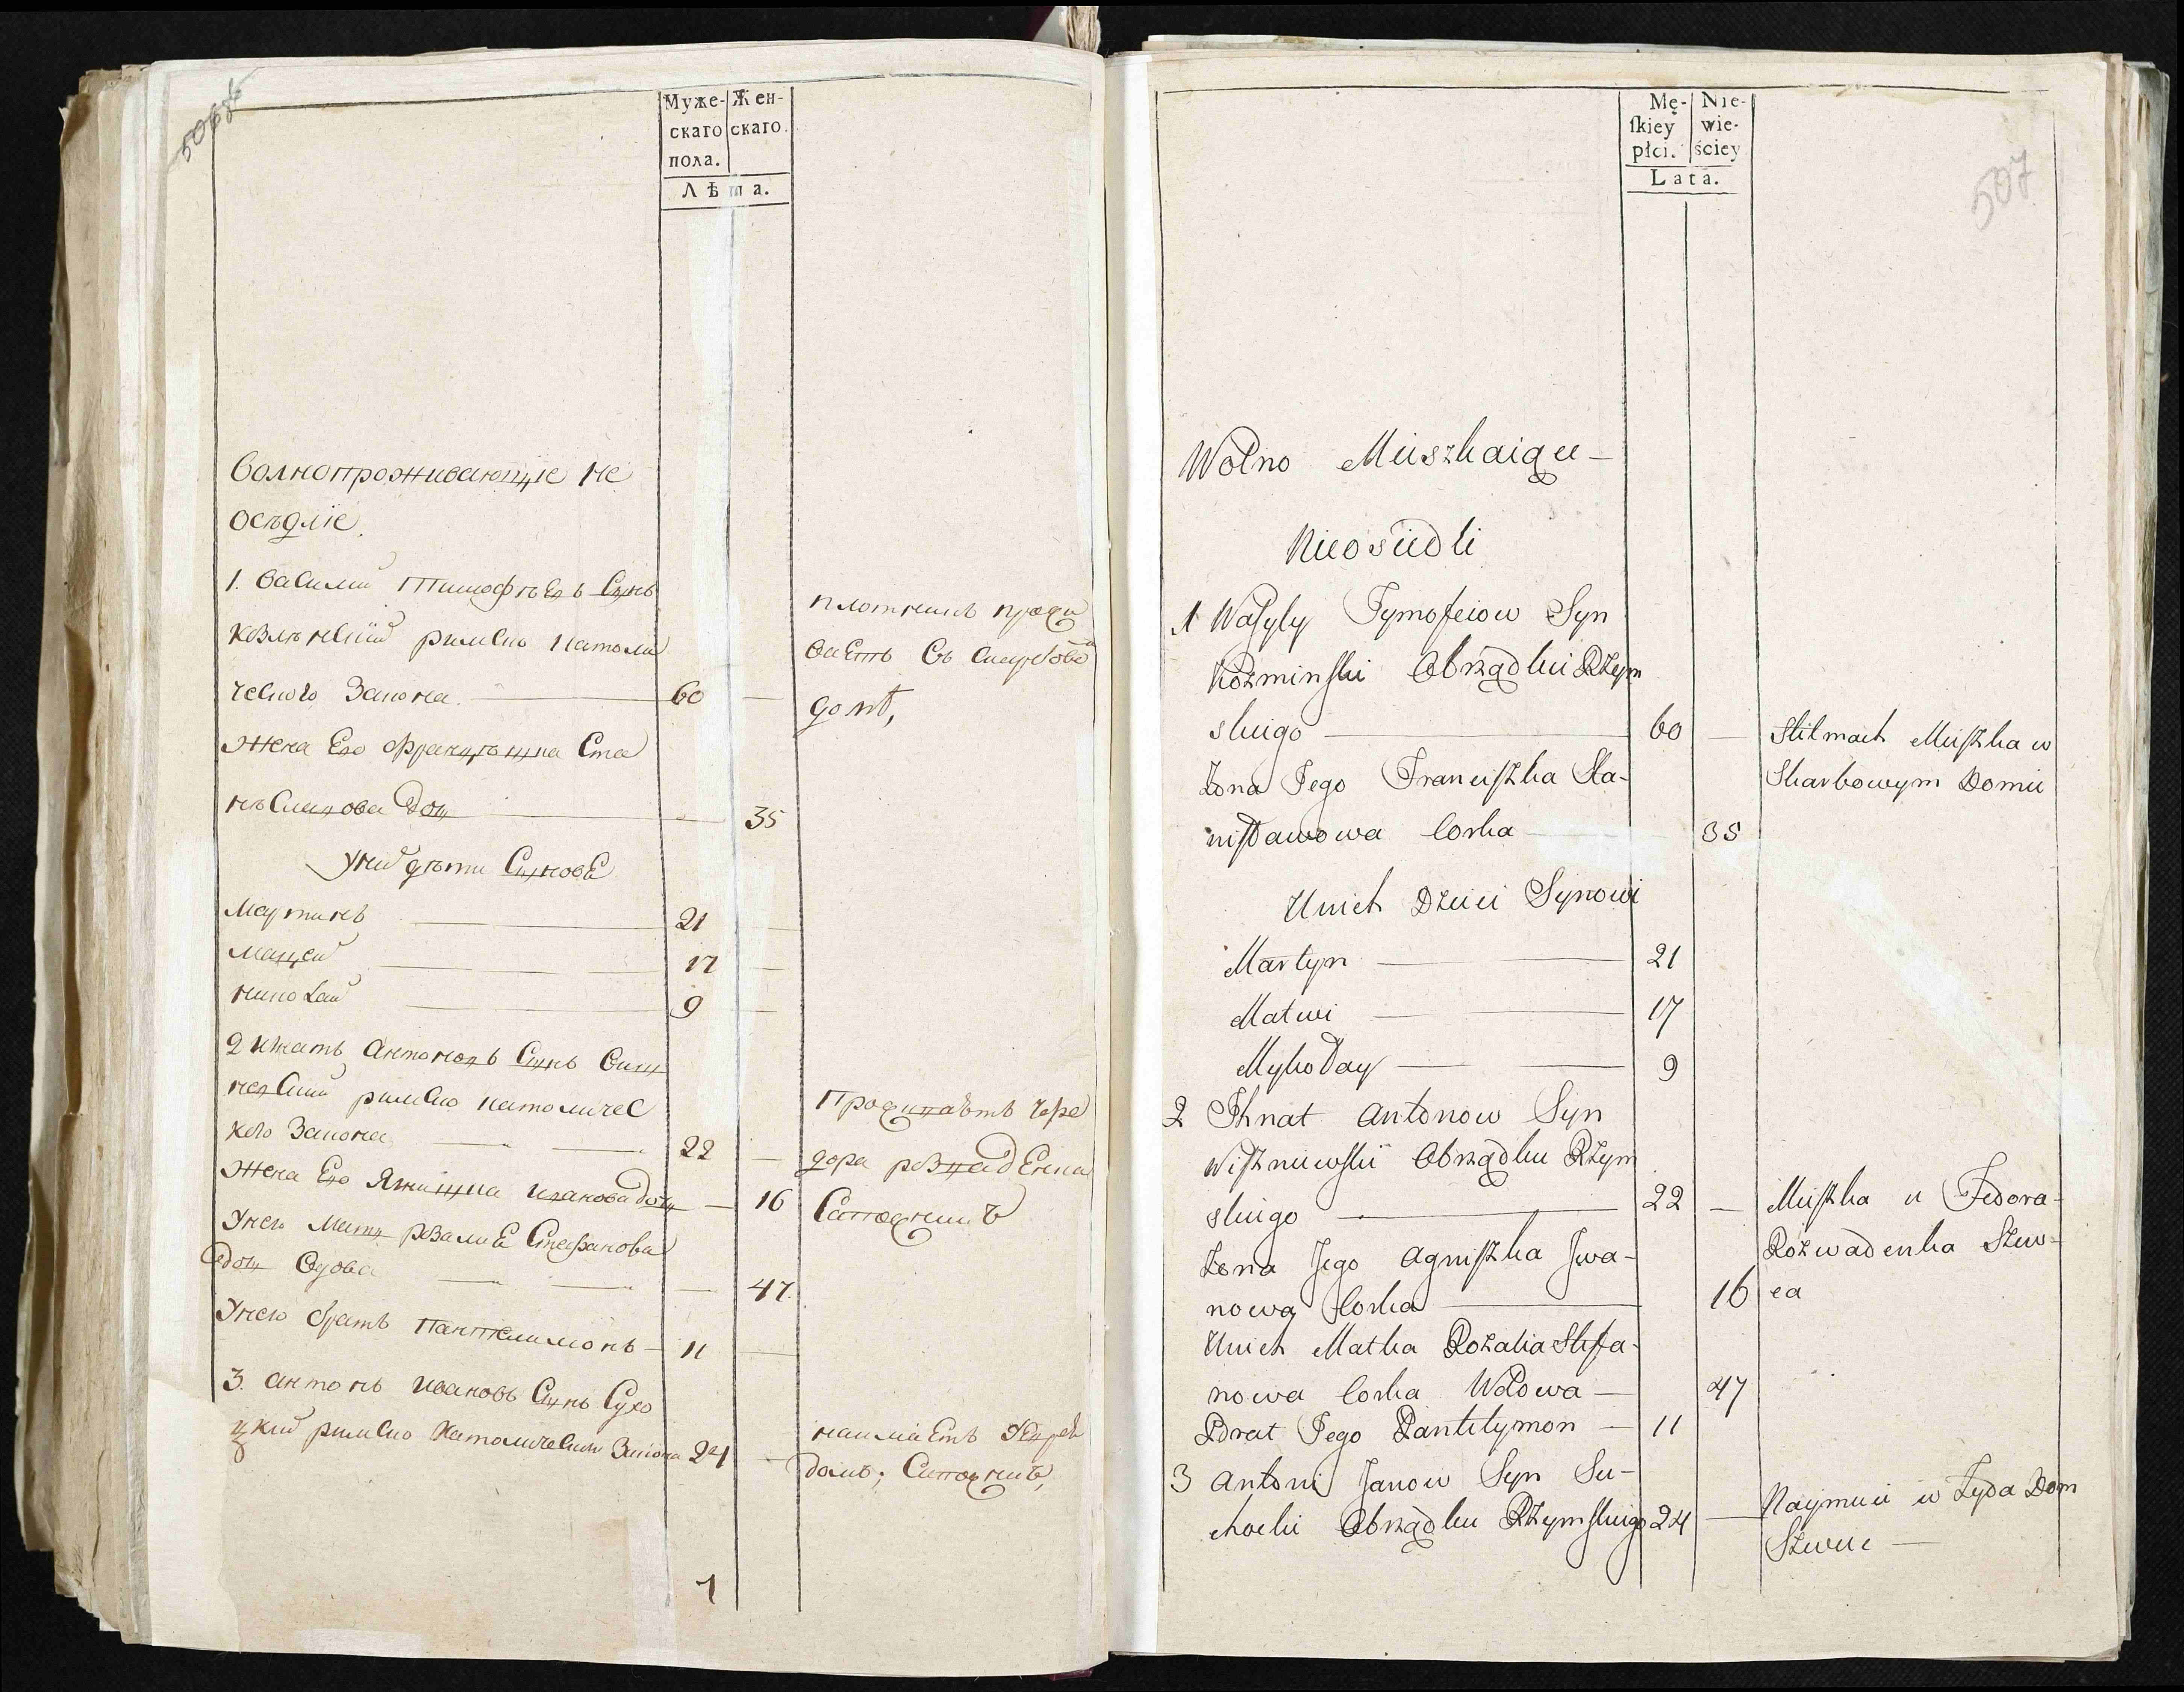 506об
Муже- Жен-
скаго скаго.
пола.
Лѣта.
волнопроживающие не
оседлїе.
1. Василий Тимофѣевъ Сынъ
римско католи
ческого закона. — 60 —
плотникъ прожи
ваетъ въ скарбовой
домѣ,
жена Его Францѣшка Ста
ниславова дочь — 35
у них дѣти Сынове
Мартинъ — 21 —
Мацей — 17 —
Николай — 9 —
2 игнатъ Антоновъ Сынъ Виш
невский римско католичес
кого закона — 22 —
Проживаетъ
Сапожникъ
жена Его Ягнишка иванова дочь — 16
у него мать розалиЕ Стефанова
дочь вдова — 47.
у него братъ пантелимонъ — 11 —
3. антонъ ивановъ Сынъ Сухо
цкий римско католическом закона 24 —
наимаетъ
домъ; Сапожникъ,
7
507
Mę- Nie-
skiey wie-
płci. ściey
Lata.
Wolno Mieszkaiące —
Nieosiedli
1 Wasyly Tymofeiow Syn
Kozminski Obrządku Rzym
skiego — 60 —
Stelmach Mieszka w
Skarbowym Domie
Żona Jego Franciszka Sta-
nisławowa Corka — 35
U nich Dzieci Synowi
Martyn — 21
Matwi — 17
Mykołay — 9
2 Ihnat Antonow Syn
Wiszniewski Obrządku Rzym
skiego — 22 —
Mieszka u Fedora
Rozwadenka Szew-
ca
Żona Jego Agniszka Iwa-
nowa Corka — 16
U nich Matka Rozalia Stefa-
nowa Corka Wdowa — 47
Brat Jego Pantelymon — 11
3 Antoni Janow Syn Su-
chocki Obrządku Rzymskiego 24 —
Naymuie w Żyda Dom
Szewc —